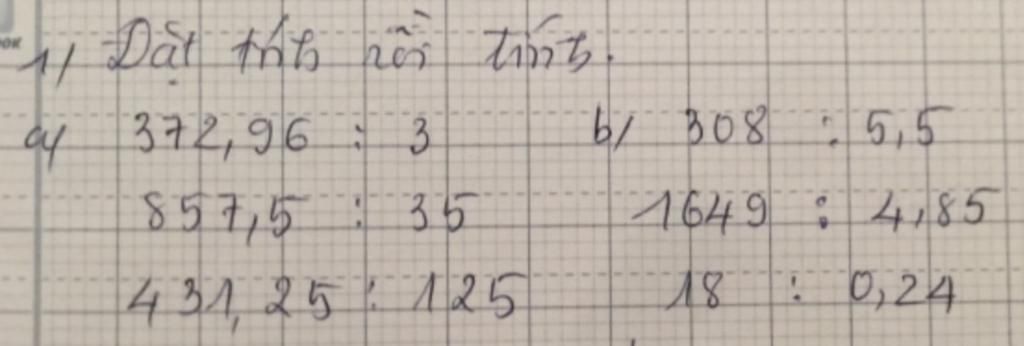 1) Đặt tính rồi tính.
a) 372,96 : 3 b) 308 : 5,5
857,5 : 35 1649 : 4,85
431,25 : 125 18 : 0,24